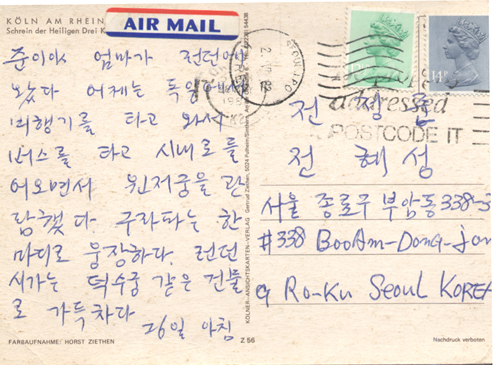 KÖLN AM RHEIN
Schrein der Heiligen Drei K
AIR MAIL
준이야 엄마가 런던에
왔다 어제는 독일에서
비행기를 타고 와서
버스를 타고 시내로 들
어오면서 원저궁을 관
람했다. 구라파는 한
마디로 웅장하다. 런던
시가는 덕수궁 같은 건물
로 가득차다
26일 아침
FARBAUFNAHME: HORST ZIETHEN
Z 56
KÖLNER-ANSICHTSKARTEN-VERLAG
addressed
POSTCODE IT
전
전 혜성
서울 종로구 부암동 338-
#338 BooAm-Dong-Jon
g Ro-Ku Seoul KOREA
Nachdruck verboten